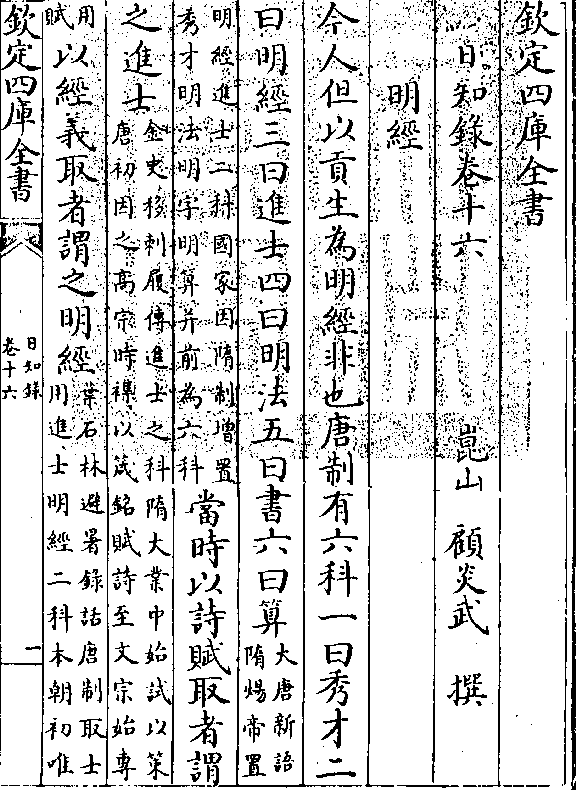 欽定四庫全書
日知錄卷十六
崑山 顧炎武 撰
明經
今人但以貢生為明經非也唐制有六科一曰秀才二
曰明經三曰進士四曰明法五曰書六曰算
大唐新語
隋煬帝置
明經進士二科國家因隋制增置
秀才明法明字明算并前為六科
當時以詩賦取者謂
之進士
金史移剌履傳進士之科隋大業中始試以策
唐初因之高宗時襍以箴銘賦詩至文宗始專
用
賦
以經義取者謂之明經
葉石林避暑錄話唐制取士
用進士明經二科本朝初唯
欽定四庫全書
日知錄
卷十六
一